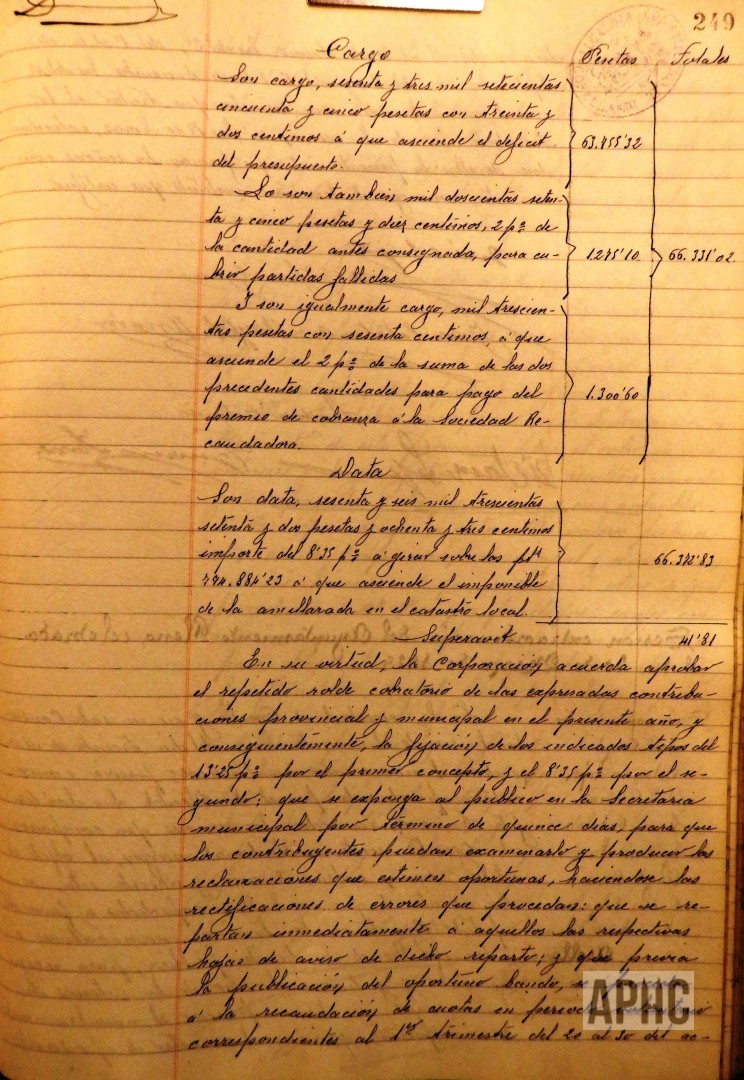 249
Cargo Pesetas Totales
Son cargo, sesenta y tres mil setecientas
cincuenta y cinco pesetas con treinta y
dos centimos á que asciende el deficit 63.755'32
del presupuesto.
Lo son tambien mil doscientas seten-
ta y cinco pesetas y diez centimos, 2 pº de
la cantidad antes consignada, para cu- 1.275'10 66.331'02
brir partidas fallidas
Y son igualmente cargo, mil trescien-
tas pesetas con sesenta centimos, á que
asciende el 2 pº de la suma de las dos
precedentes cantidades para pago del 1.300'60
premio de cobranza á la Sociedad Re-
caudadora.
Data
Son data, sesenta y seis mil trescientas
setenta y dos pesetas y ochenta y tres centimos
importe del 8'35 pº á girar sobre las pts 66.372'83
794.884'23 á que asciende el imponible
de la amillarada en el catastro local.
Superavit 41'81
En su virtud, la Corporación acuerda aprobar
el repetido rolde cobratorio de las expresadas contribu-
ciones provincial y municipal en el presente año, y
consiguientemente, la fijación de los indicados tipos del
13'25 pº por el primer concepto, y el 8'35 pº por el se-
gundo: que se exponga al público en la Secretaria
municipal por término de quince dias, para que
los contribuyentes puedan examinarlo y producir las
reclamaciones que estimen oportunas, haciendose las
rectificaciones de errores que procedan: que se re-
partan inmediatamente á aquellos las respectivas
hojas de aviso de dicho reparto; y que previa
la publicación del oportuno bando, se
á la recaudación de cuotas en periodo
correspondientes al 1er trimestre del 20 al 30 del ac-
APHC